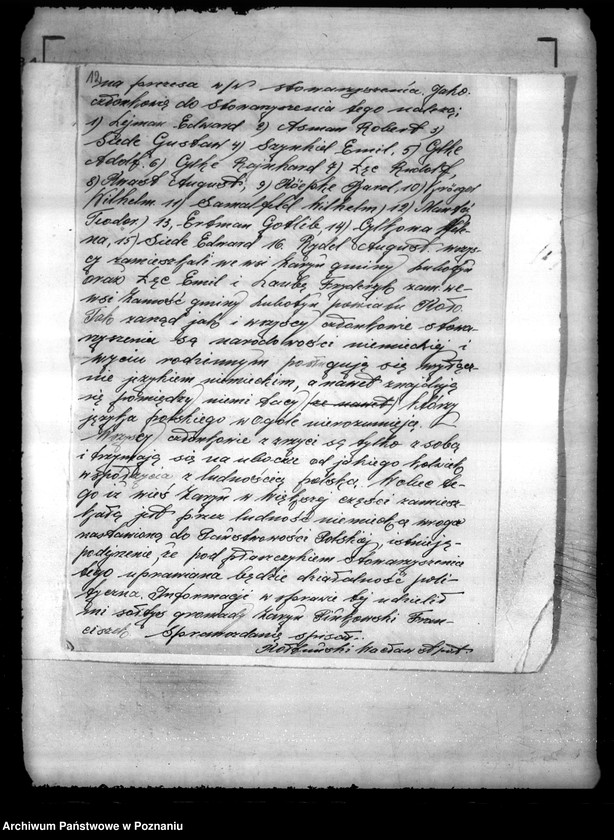 12
na prezesa w/w stowarzyszenia. Jako
członkowie do stowarzyszenia tego należą;
1) Lejman Edward 2) Asman Robert 3)
Siede Gustaw 4) Szynkiel Emil. 5) Cytke
Adolf. 6) Cytke Rajnhard 7) Łęc Rudolf,
8) August, 9) Karol, 10)
Wilhelm 11) Wilhelm, 12)
Teodor, 13, Ertman Gotlib 14)
15) Siede Edward 16. Rydel August wszy-
cy zamieszkali we wsi gminy Lubotyn
oraz Łęc Emil i Fryderyk zam. we
wsi gminy Lubotyn powiatu Koło.
Tak zarząd jak i wszyscy członkowie stowa-
rzyszenia są narodowości niemieckiej i
w życiu rodzinnym posługują się wyłącz-
nie językiem niemieckim, a nawet znajdują
się pomiędzy niemi tacy którzy
języka polskiego w ogóle nierozumieją.
Wszyscy członkowie zżyci są tylko z sobą
i trzymają się na uboczu od jakiego kolwiek
współżycia z ludnością polską. Wobec te-
go iż wieś w większej części zamiesz-
kałą jest przez ludność niemiecką wrogo
nastawioną do Państwowości Polskiej, istnieje
podejrzenie że pod płaszczykiem stowarzyszenia
tego uprawiana będzie działalność poli-
tyczna. Informacje w sprawie tej udzielił
mi sołtys gromady Fran-
ciszek Sprawozdanie spisał.
Wacław st. post.
Archiwum Państwowe w Poznaniu